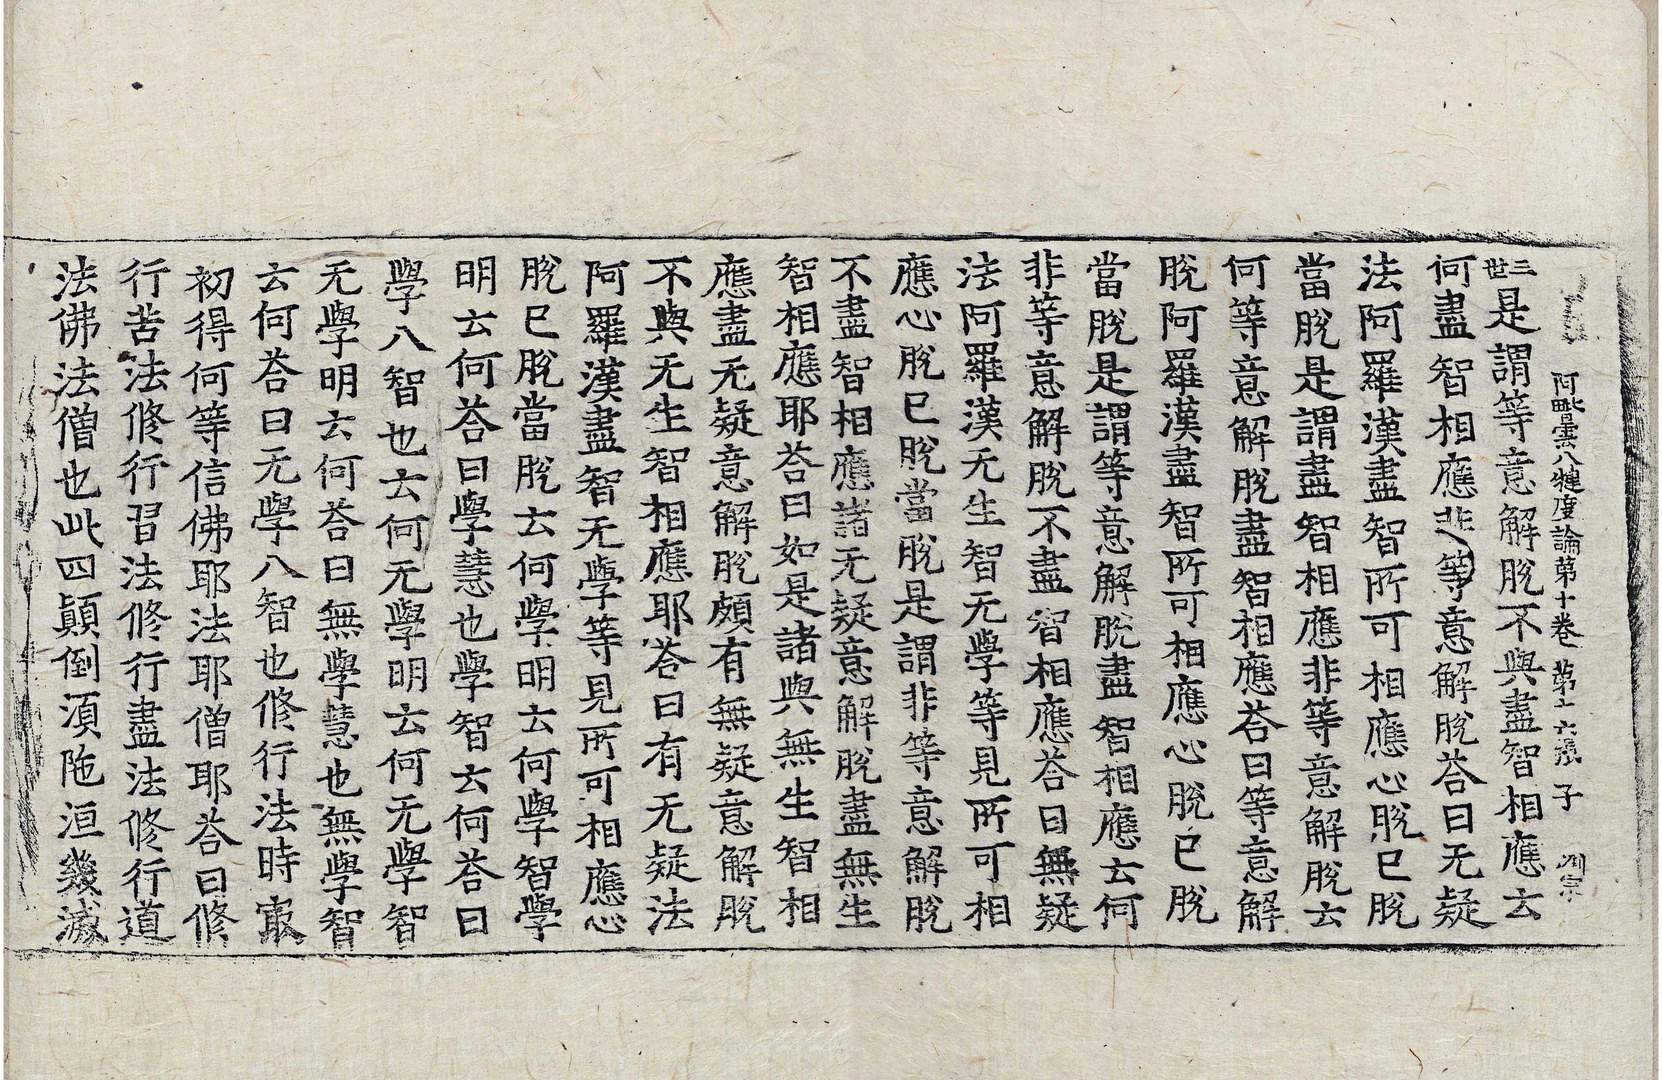 阿毗曇八犍度論第十卷 第十六張 子
三世是謂等意解脫不與盡智相應云
何盡智相應非等意解脫荅曰无疑
法阿羅漢盡智所可相應心脫已脫
當脫是謂盡智相應非等意解脫云
何等意解脫盡智相應荅曰等意解
脫阿羅漢盡智所可相應心脫已脫
當脫是謂等意解脫盡智相應云何
非等意解脫不盡智相應荅曰無疑
法阿羅漢无生智无學等見所可相
應心脫已脫當脫是謂非等意解脫
不盡智相應諸无疑意解脫盡無生
智相應耶荅曰如是諸與無生智相
應盡无疑意解脫頗有無疑意解脫
不與无生智相應耶荅曰有无疑法
阿羅漢盡智无學等見所可相應心
脫已脫當脫云何學明云何學智學
明云何荅曰學慧也學智云何荅曰
學八智也云何无學明云何无學智
无學明云何荅曰無學慧也無學智
云何荅曰无學八智也修行法時㝡
初得何等信佛耶法耶僧耶荅曰修
行苦法修行習法修行盡法修行道
法佛法僧也此四顛倒湏陁洹幾滅